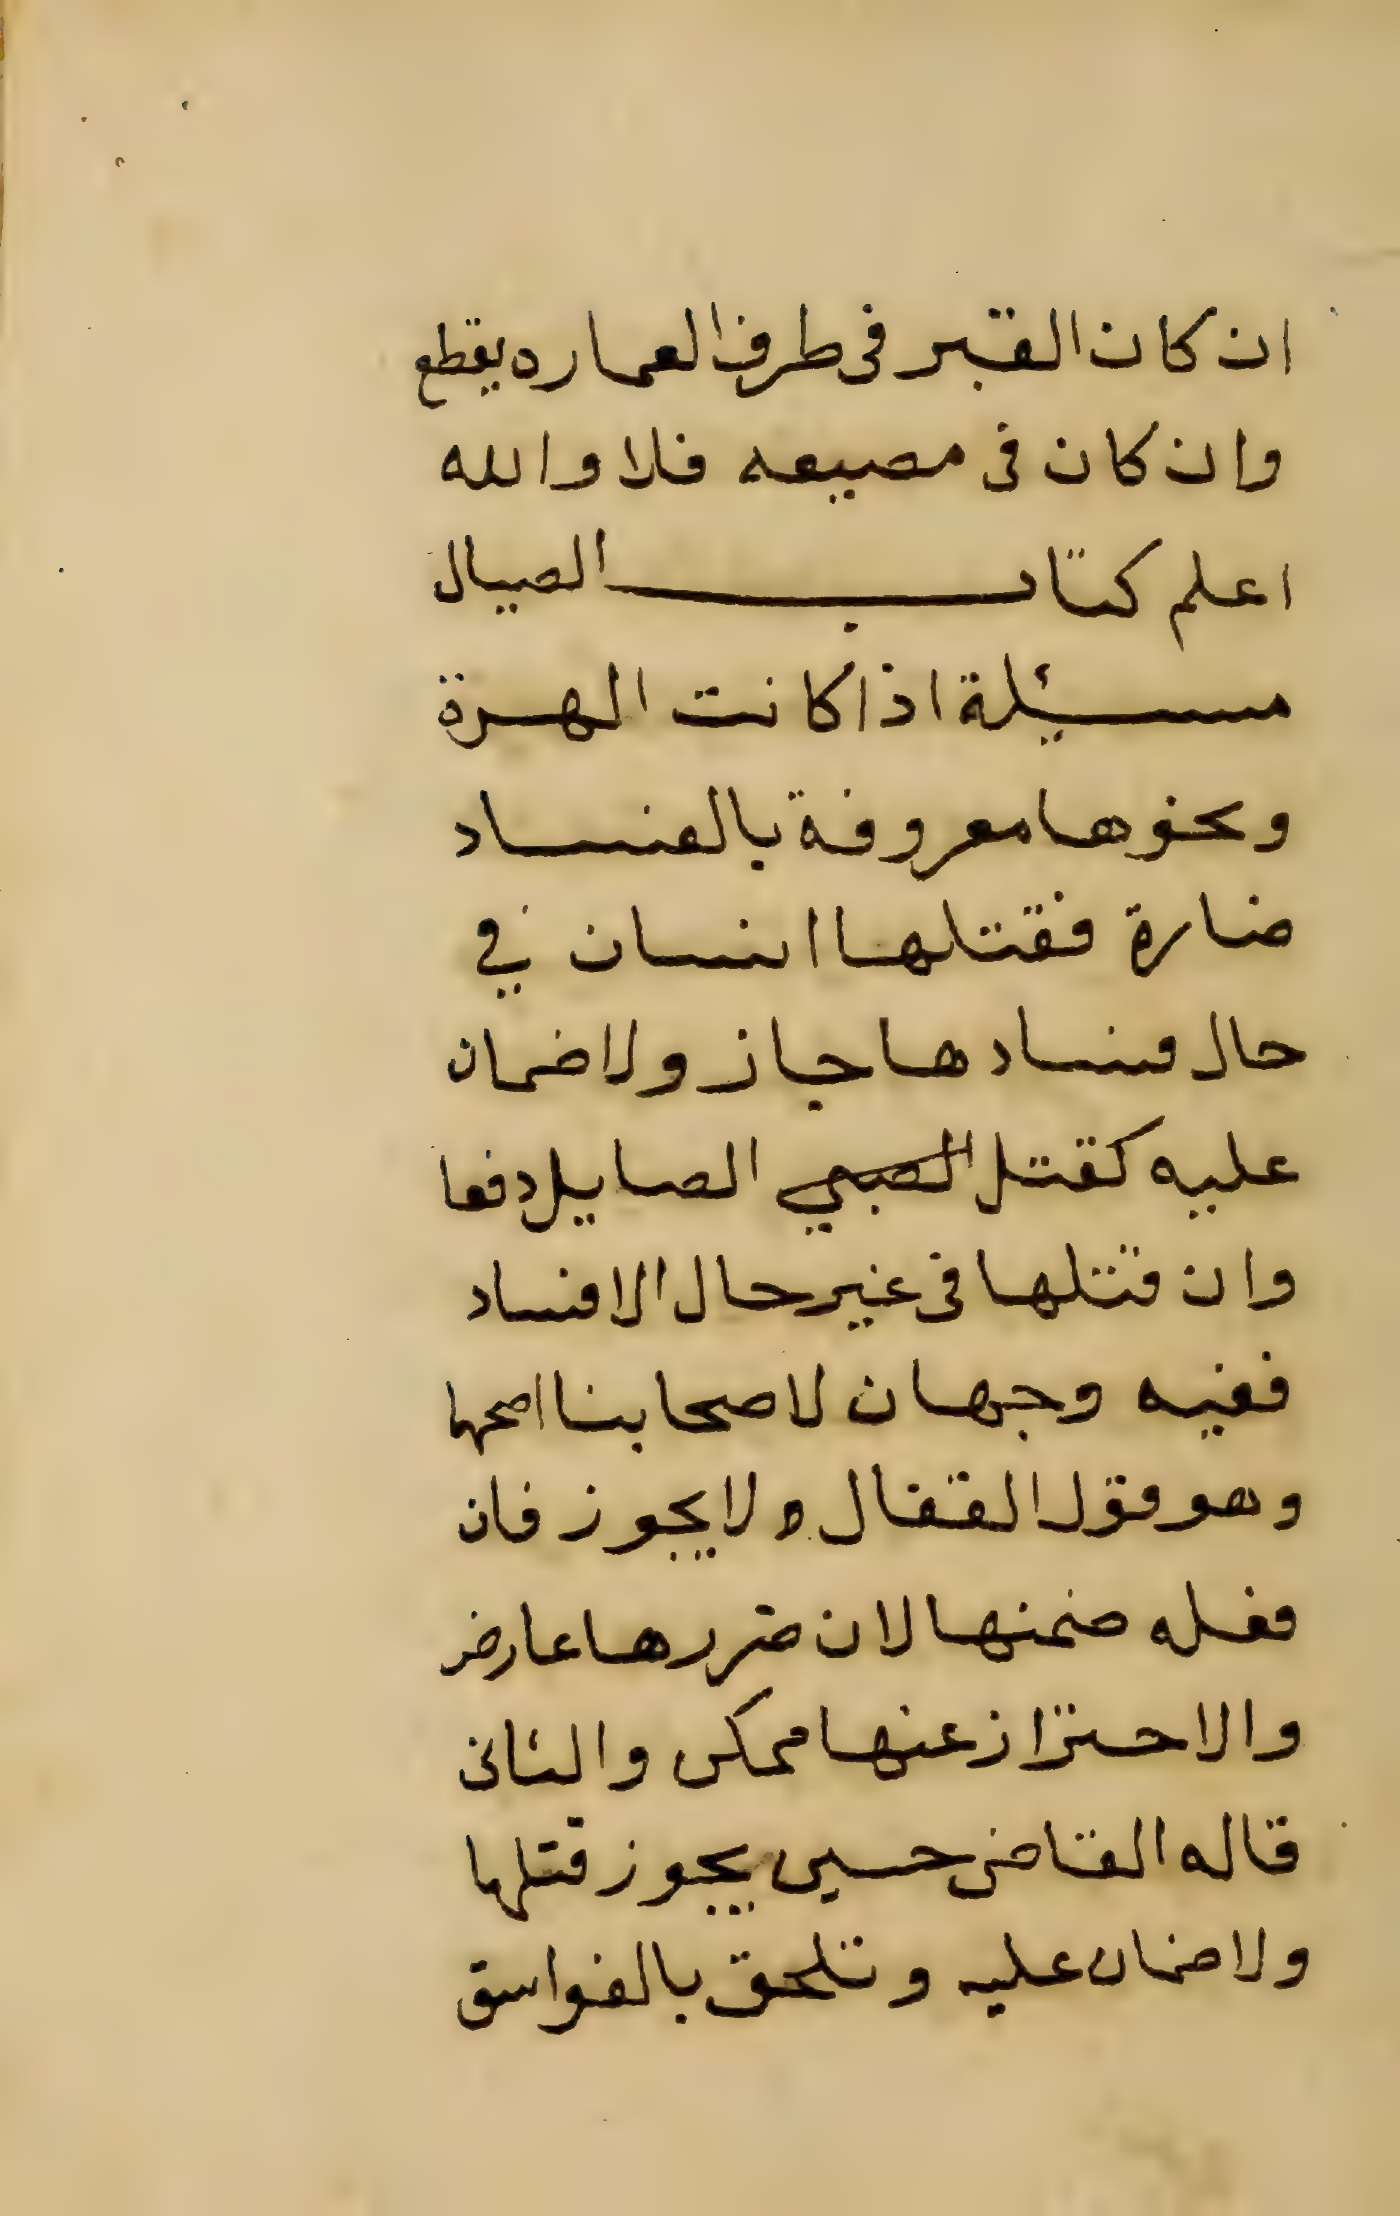 ان كان القبر فى طرف العماره يقطع
وان كان فى مصيعه فلا والله
اعلم كتاب الصيال
مسئلة اذا كانت الهرة
ونحوها معروفة بالفساد
ضارة فقتلها انسان في
حال فسادها جاز ولا ضمان
عليه كقتل الصبي الصايل دفعا
وان قتلها فى غير حال الافساد
ففيه وجهان لاصحابنا اصحها
وهو قول القفال ه لا يجوز فان
فعله ضمنها لان ضررها عارض
والاحتراز عنها ممكن والثانى
قاله القاضى حسين يجوز قتلها
ولا ضمان عليه وتلحق بالفواسق